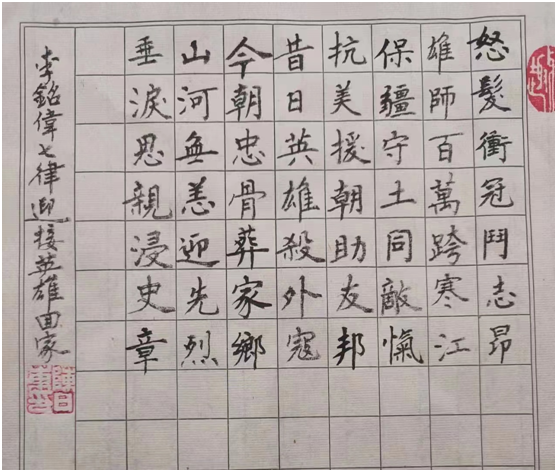 怒髮衝冠鬥志昂
雄師百萬跨寒江
保疆守土同敵愾
抗美援朝助友邦
昔日英雄殺外寇
今朝忠骨葬家鄉
山河無恙迎先烈
垂淚思親浸史章
李銘偉七律迎接英雄回家